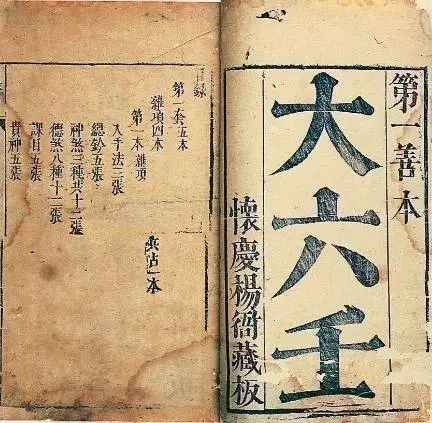 第一善本
大六壬
懷慶楊衙藏板
目錄
第一套五本
雜項四本　兵占一本
第一本 雜項
入手法三張
總鈐五張
神煞三種共十二張
德煞八種十二張
課目五張
貴神五張